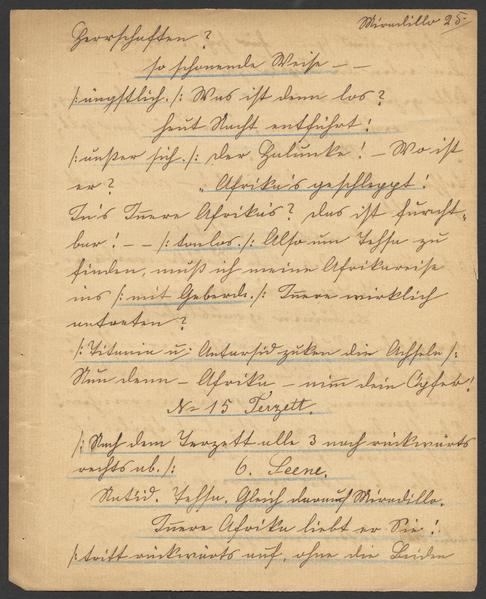 Miradillo 25.
Herrschaften?
so schonende Weise – –
/: ängstlich. :/ Was ist denn los?
heut Nacht entführt!
/: außer sich. :/ Der Halunke! – Wo ist
er? „ Afrika's geschleppt!
In's Innere Afrika's? Das ist furcht-
bar! – – /: tonlos. :/ Also um Tehsa zu
finden, muß ich meine Afrikareise
ins /: mit Geberde. /: Innere wirklich
antreten?
/: Titania u: Antarsid zuken die Achseln /:
Nun denn – Afrika – nimm dein Opfer!
No 15 Terzett.
/: Nach dem Terzett alle 3 nach rückwärts
rechts ab. /: 6. Scene.
Natzid. Tehsa. Gleich darauf Miradillo.
Innere Afrika liebt er Sie!
/: tritt rückwärts auf, ohne die Beiden